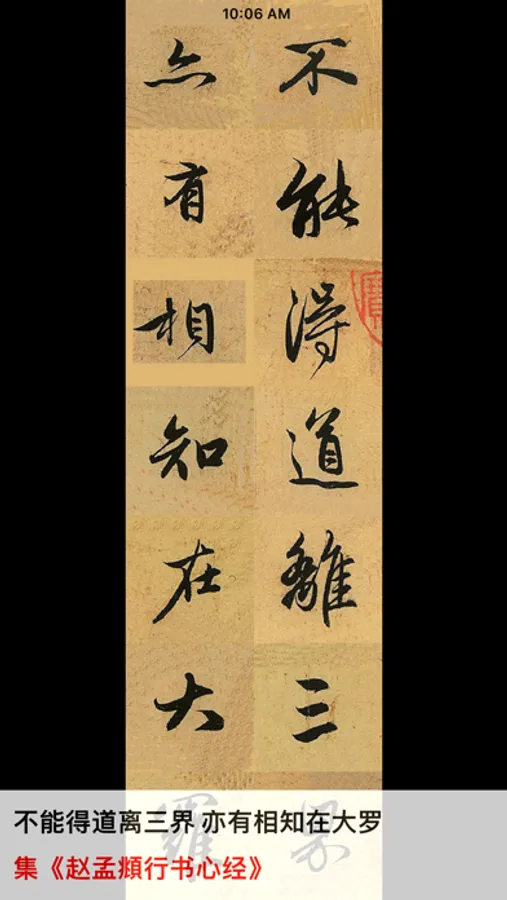 10:06 AM
不能得道離三界
亦有相知在大羅
不能得道离三界 亦有相知在大罗
集《赵孟頫行书心经》